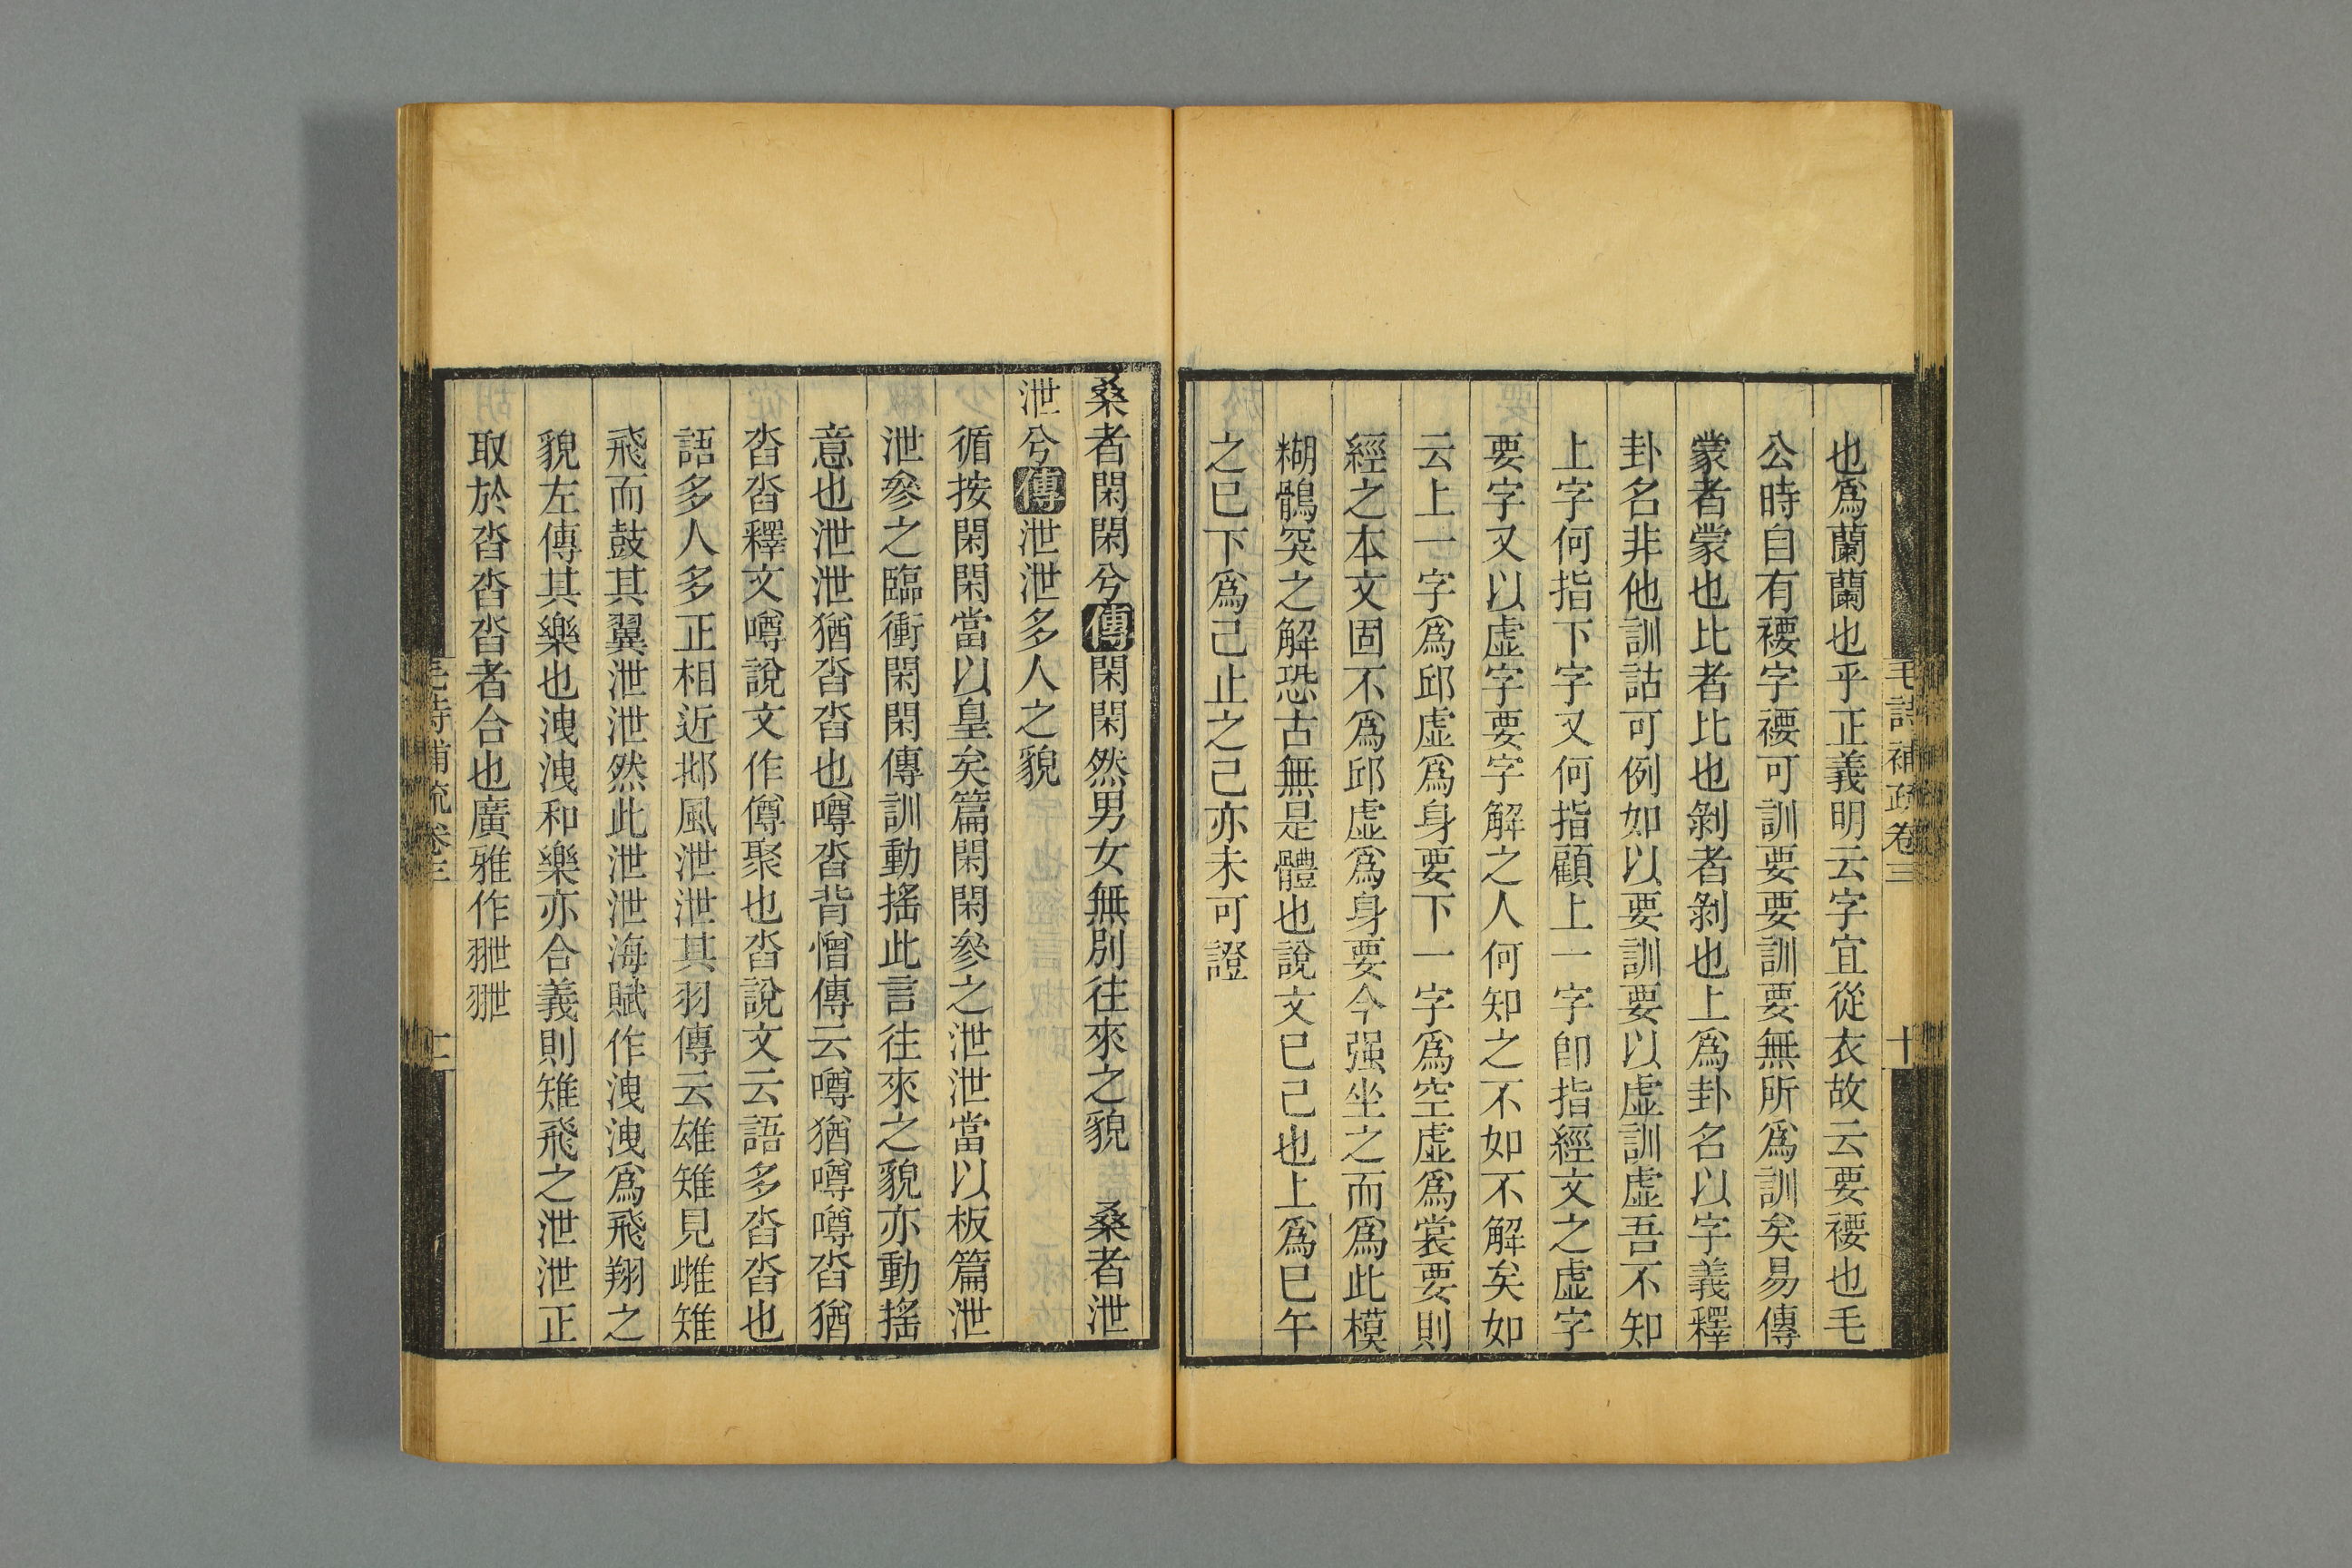 毛詩補疏卷三
十
也爲蘭蘭也乎正義明云字宜從衣故云要䙅也毛
公時自有䙅字䙅可訓要要訓要無所爲訓矣易傳
蒙者蒙也比者比也剝者剝也上爲卦名以字義釋
卦名非他訓詁可例如以要訓要以虛訓虛吾不知
上字何指下字又何指顧上一字卽指經文之虛字
要字又以虛字要字解之人何知之不如不解矣如
云上一字爲邱虛爲身要下一字爲空虛爲裳要則
經之本文固不爲邱虛爲身要今强坐之而爲此模
糊鶻突之解恐古無是體也說文巳己也上爲巳午
之巳下爲己止之己亦未可證
桑者閑閑兮傳閑閑然男女無別往來之貌　桑者泄
泄兮傳泄泄多人之貌
循按閑閑當以皇矣篇閑閑參之泄泄當以板篇泄
泄參之臨衝閑閑傳訓動搖此言往來之貌亦動搖
意也泄泄猶沓沓也噂沓背憎傳云噂猶噂噂沓猶
沓沓釋文噂說文作僔聚也沓說文云語多沓沓也
語多人多正相近邶風泄泄其羽傳云雄雉見雌雉
飛而鼓其翼泄泄然此泄泄海賦作洩洩爲飛翔之
貌左傳其樂也洩洩和樂亦合義則雉飛之泄泄正
取於沓沓沓者合也廣雅作𦐊𦐊
毛詩補疏卷三